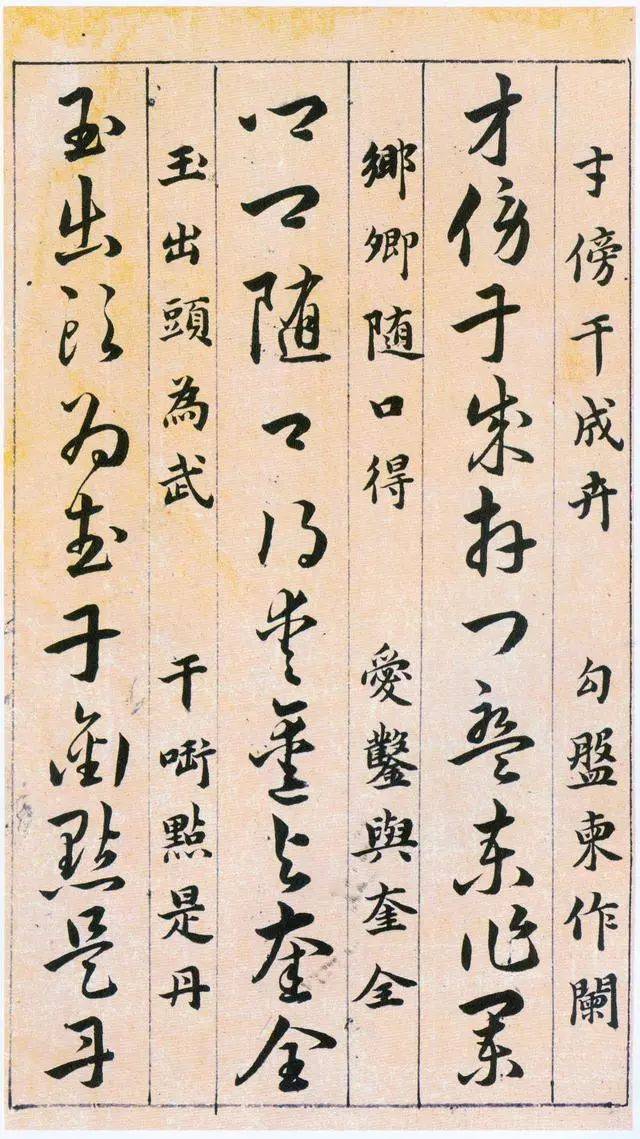 才傍干成卉 勾盤柬作闌
才傍干成卉勾盤柬作闌
鄉卿随口得 愛鑿與奎全
鄉卿随口得愛鑿與奎全
玉出頭為武 干啣點是丹
玉出頭為武干啣點是丹